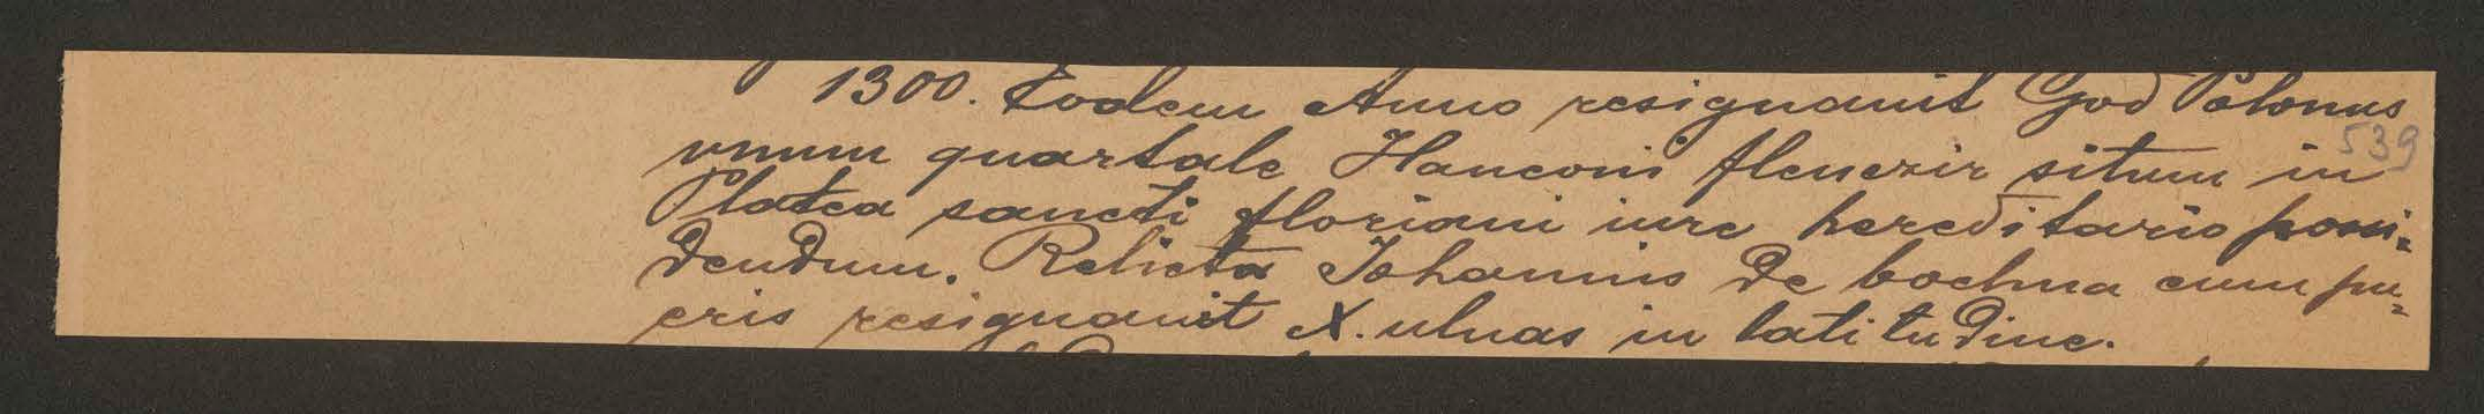 1300. Eodem Anno resignauit God Polonus
539
vnum quartale Hanconi flenczir situm in
Platea sancti floriani iure hereditario possi-
dendum. Relicta Johannis de bochna cum pu-
eris resignauit X. ulnas in latitudine.